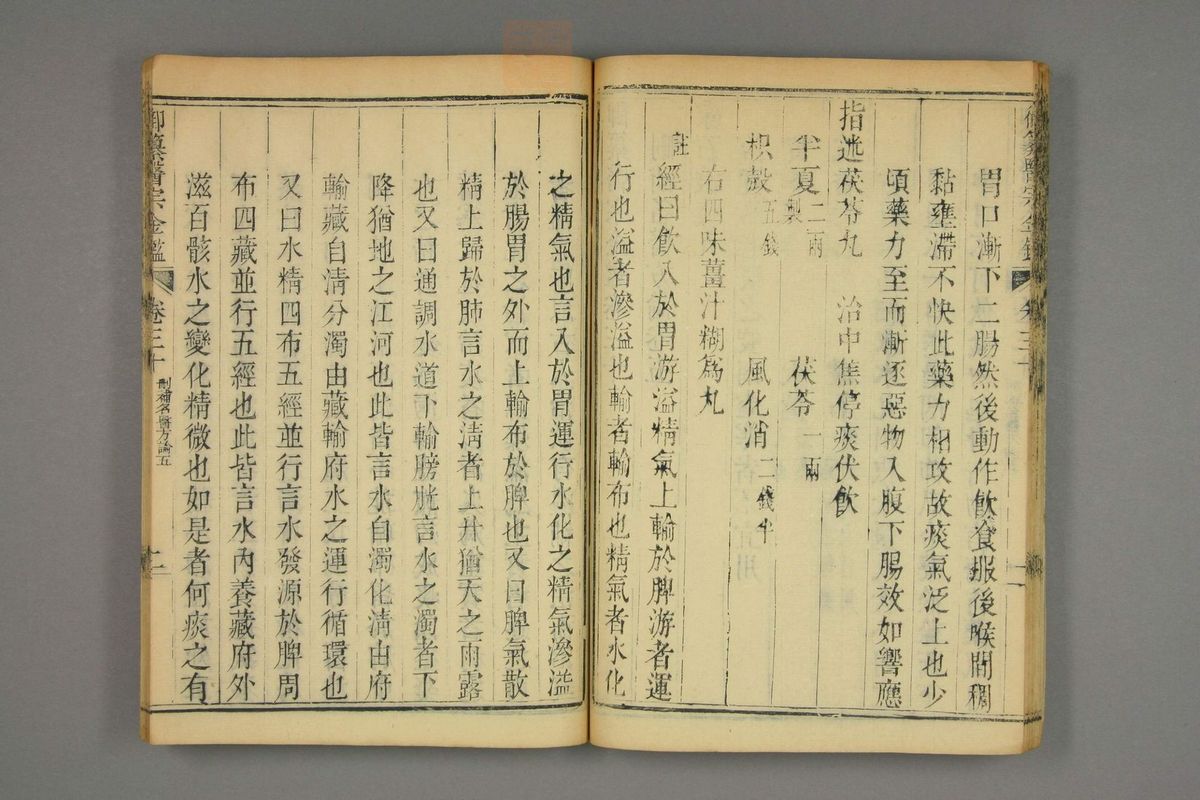 胃口漸下二腸然後動作飲食服後喉間稠
黏壅滯不快此藥力相攻故痰氣泛上也少
頃藥力至而漸逐惡物入腹下腸效如響應
指迷茯苓丸 治中焦停痰伏飲
半夏二兩製 茯苓一兩
枳殼五錢 風化消二錢半
右四味薑汁糊爲丸
註 經曰飮入於胃游溢精氣上輸於脾游者運
行也溢者滲溢也輸者輸布也精氣者水化
之精氣也言入於胃運行水化之精氣滲溢
於腸胃之外而上輸布於脾也又曰脾氣散
精上歸於肺言水之淸者上升猶天之雨露
也又曰通調水道下輸膀胱言水之濁者下
降猶地之江河也此皆言水自濁化淸由府
輸藏自淸分濁由藏輸府水之運行循環也
又曰水精四布五經並行言水發源於脾周
布四藏並行五經也此皆言水內養藏府外
滋百骸水之變化精微也如是者何痰之有
御纂醫宗金鑑 卷三十 刪補名醫方論五